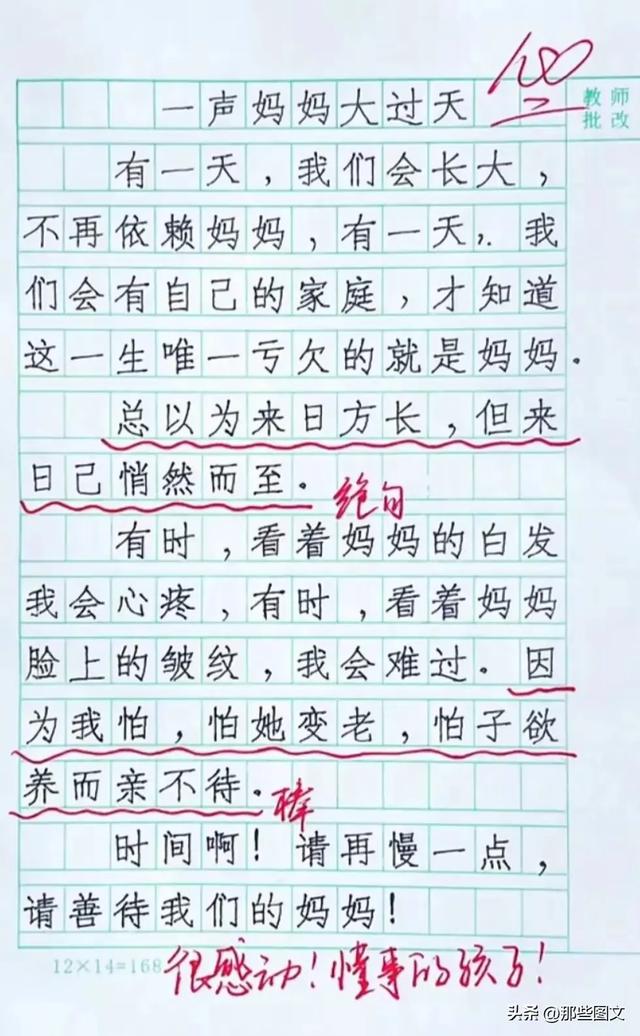 一声妈妈大过天
100
教师
批改
有一天，我们会长大，
不再依赖妈妈，有一天，.我
们会有自己的家庭，才知道
这一生唯一亏欠的就是妈妈。
总以为来日方长，但来
日己悄然而至。
绝句
有时，看着妈妈的白发
我会心疼，有时，看着妈妈
脸上的皱纹，我会难过。因
为我怕，怕她变老，怕子欲
养而亲不待。
棒
时间啊！请再慢一点，
请善待我们的妈妈！
12×14=168
很感动！懂事的孩子！
头条 @那些图文